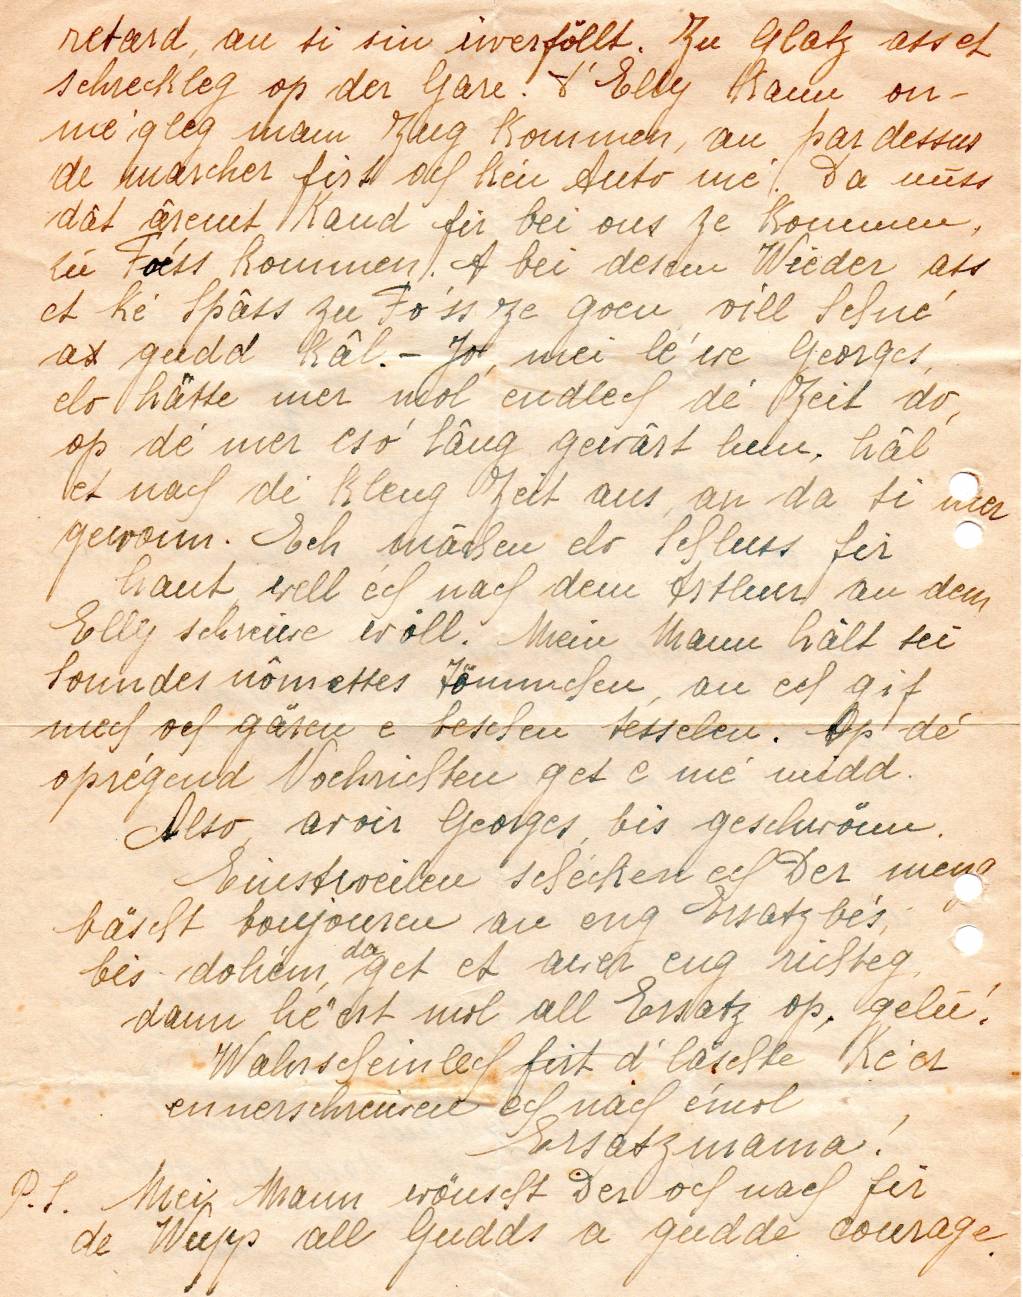 retard, an si sin iwerföllt. Zu Glatz ass et
schreckleg op der Gare. d'Elly kann on-
mé'gleg mam Zug kommen, an par dessus
de marcher firt och kén Auto mé! Da muss
dât âremt Kand fir bei ons ze kommen,
zu Fo'ss kommen. A bei desem Wieder ass
et ké Spâss zu Fo'ss ze goen, vill Schné
a gudd Kâl. - Jo, mei lé'we Georges,
elo hätte mer mol endlech dé Zeit do,
op dé mer eso' lâng gewârt hun. Hâl
et nach di kleng Zeit aus, an da si mer
gewonn. Ech mâchen elo Schluss fir
haut, well éch nach dem Arthur an dem
Elly schreiwe wöll. Mein Mann hält sei
Sonndesnômettes Jömmchen, an ech gif
mech och gären e beschen tësselen. Op dé
oprégend Nochrichten get e mé midd.
Also, avoir Georges, bis geschwönn.
Einstweilen schécken ech Der meng
bäscht boujouren an eng Ersatzbés,
bis dohém, da get et awer eng richteg,
dann hé'ert mol all Ersatz op, gelu!
Wahrscheinlech firt d'läschte Ké'er
ennerschreiwen ech nach émol
Ersatzmama!
P.S. Mein Mann wönscht Der och nach fir
de Wupp all Gudds a gudde courage.